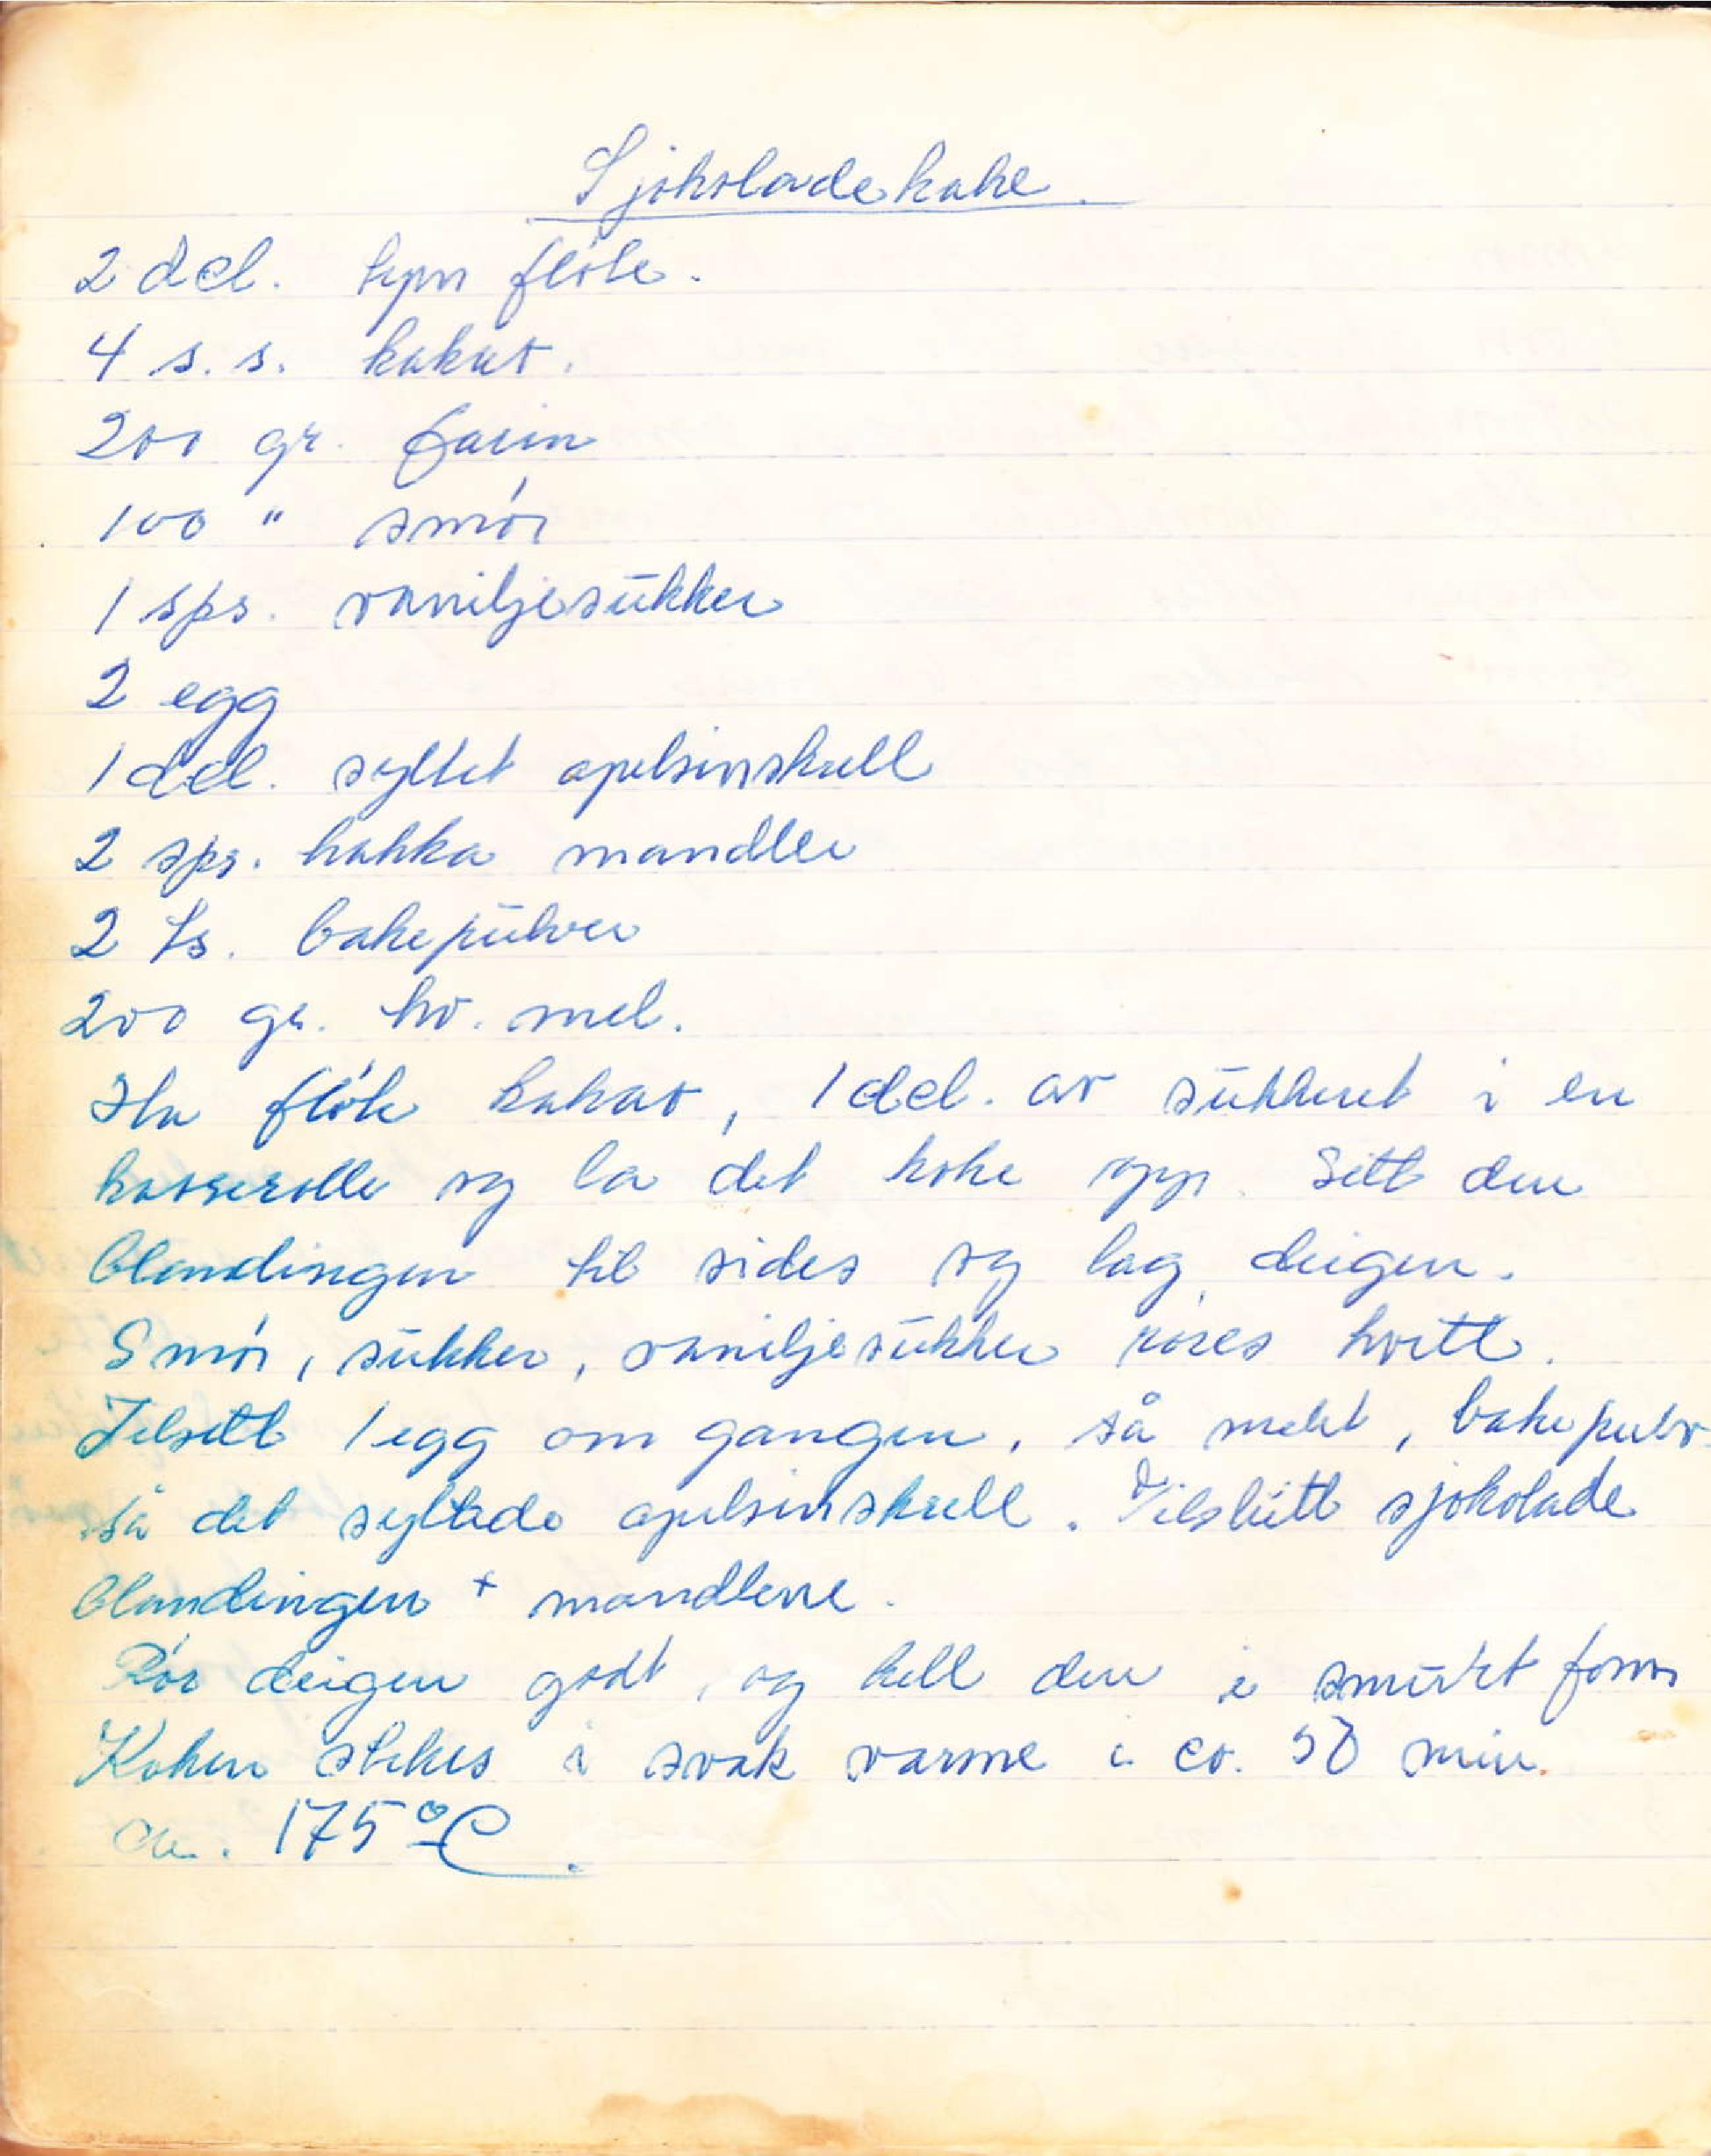 Sjokoladekake.
2 del. kpn fløte.
4 s.s. kakao.
200 gr. farin
100 " smør
1 sps. vaniljesukker
2 egg
1 del. syltet apelsinskall
2 sps. hakka mandler
2 ts. bakepulver
200 gr. hv. mel.
Ha fløte kakao, 1 del. av sukkeret i en
kasserolle og la det koke opp. Sett den
blandingen til sides og lag deigen.
Smør, sukker, vaniljesukker røres hvitt.
Tilsett 1 egg om gangen, så melet, bakepulv.
så det syltede apelsinskall. Tilslutt sjokolade
blandingen + mandlene.
Rør deigen godt, og hell den i smurt form
Kaken stekes i svak varme i ca. 50 min.
ca. 175°C.